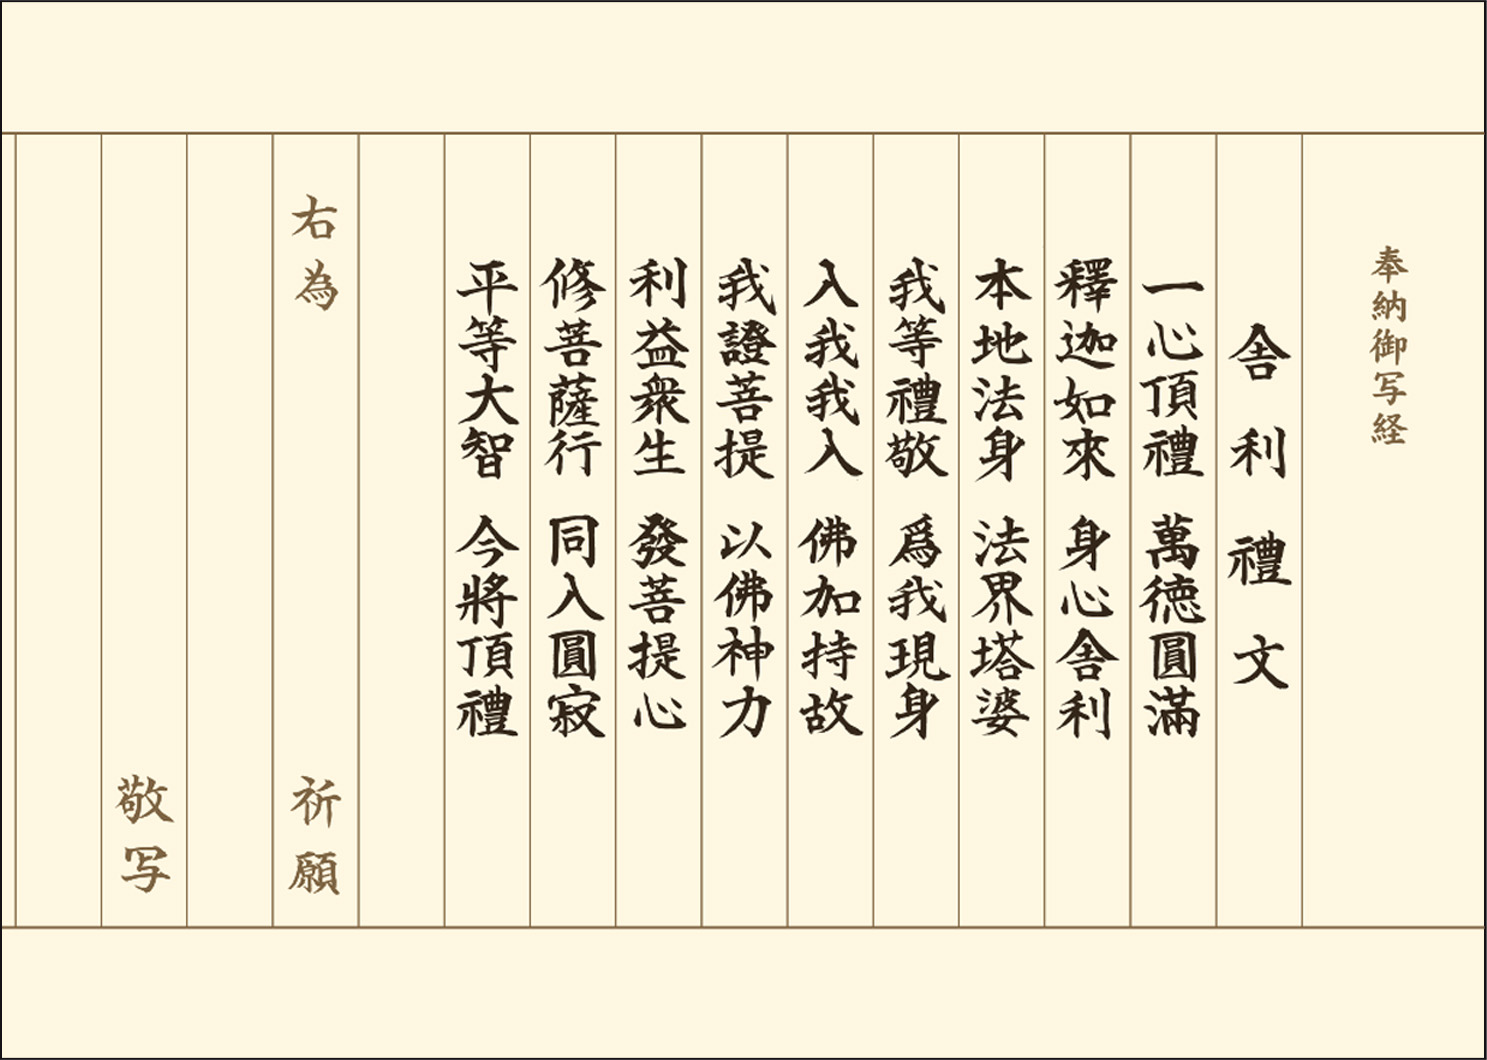 奉納御写経
舎利禮文
一心頂禮 萬徳圓滿
釋迦如來 身心舎利
本地法身 法界塔婆
我等禮敬 爲我現身
入我我入 佛加持故
我證菩提 以佛神力
利益衆生 發菩提心
修菩薩行 同入圓寂
平等大智 今將頂禮
右為 祈願
敬写